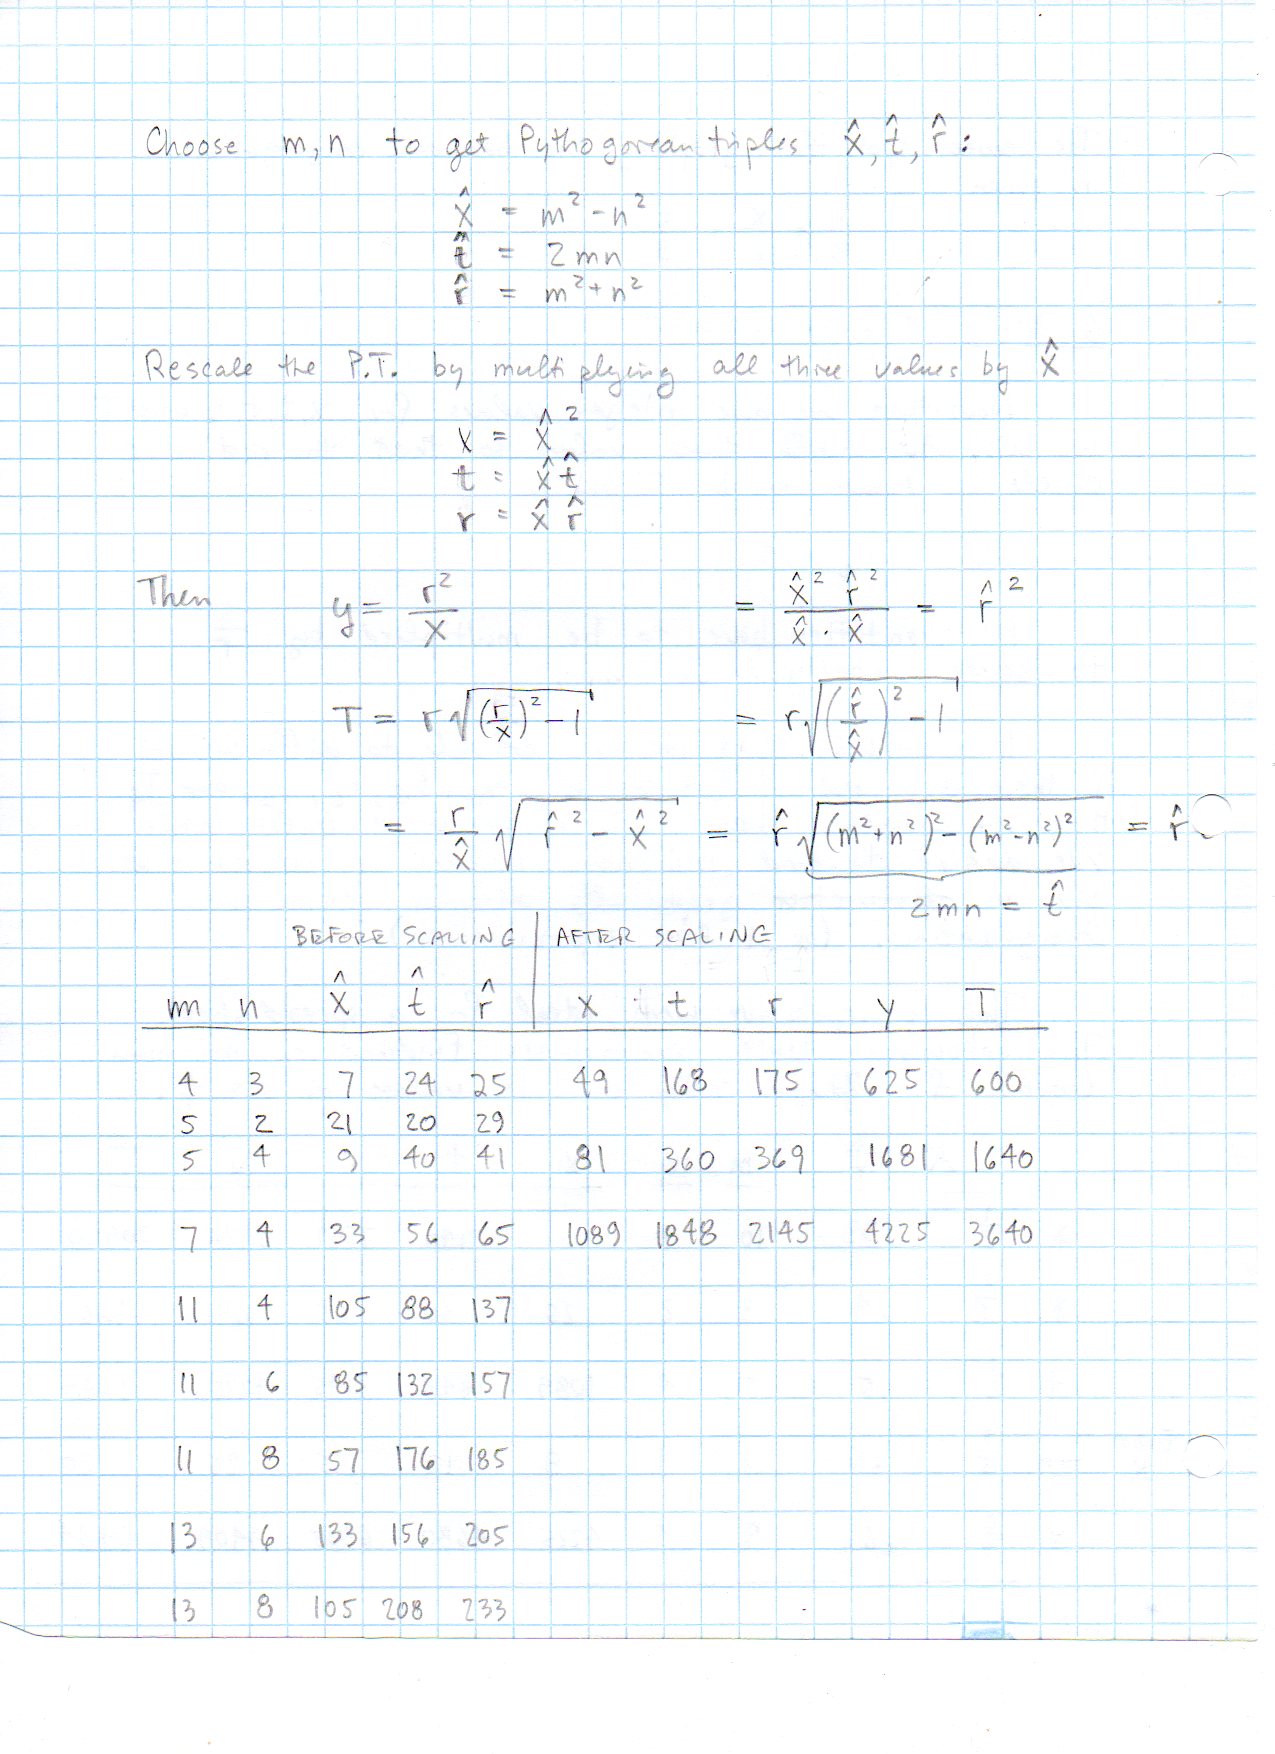 Choose m, n to get Pythogorean triples x̂, t̂, r̂ :
x̂ = m² - n²
t̂ = 2mn
r̂ = m² + n²
Rescale the P.T. by multiplying all three values by x̂
x = x̂²
t = x̂ t̂
r = x̂ r̂
Then y = r²/x = x̂² r̂² / x̂ · x̂ = r̂²
T = r √((r/x)² - 1) = r √((r̂/x̂)² - 1)
= r/x̂ √(r̂² - x̂²) = r̂ √((m²+n²)² - (m²-n²)²) = r̂
2mn = t̂
BEFORE SCALLING | AFTER SCALING
m n x̂ t̂ r̂ | x t r y T
4 3 7 24 25 49 168 175 625 600
5 2 21 20 29
5 4 9 40 41 81 360 369 1681 1640
7 4 33 56 65 1089 1848 2145 4225 3640
11 4 105 88 137
11 6 85 132 157
11 8 57 176 185
13 6 133 156 205
13 8 105 208 233